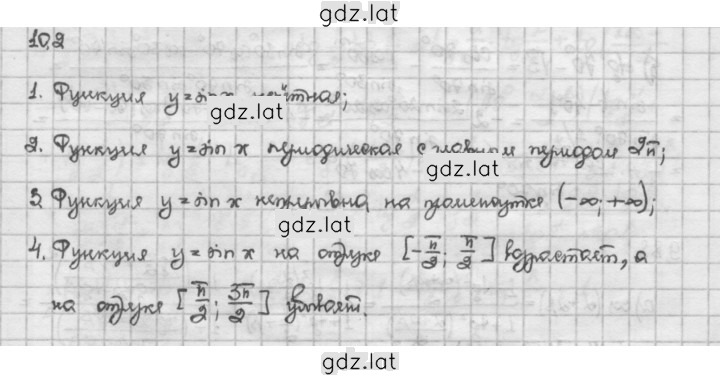 gdz.lat
10.2
1. Функция y=sin x нечётная;
gdz.lat
2. Функция y=sin x периодическая с главным периодом 2π;
gdz.lat
3. Функция y=sin x непрерывна на промежутке (-∞; +∞);
gdz.lat
4. Функция y=sin x на отрезке [-π/2; π/2] возрастает, а
на отрезке [π/2; 3π/2] убывает.
gdz.lat